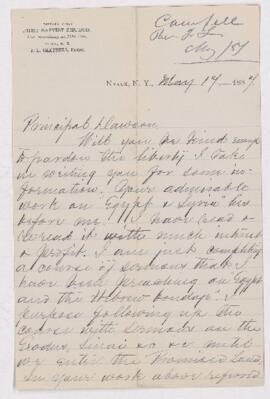 FIRST BAPTIST CHURCH
NYACK, N. Y.
J. L. CAMPBELL, Pastor.
Campbell
Rev J L
May /87
NYACK, N. Y., May 14, 1887.
Principal Dawson,
Will you be kind enough
to pardon the liberty I take
in writing you for some in-
formation. Your admirable
work on Egypt & Syria lies
before me. I have read &
re-read it with much interest
& profit. I am just completing
a course of sermons that I
have been preaching on Egypt
and the Hebrew bondage. I
purpose following up the
course with sermons on the
Exodus, Sinai &c &c until
we enter the Promised Land.
In your work above referred